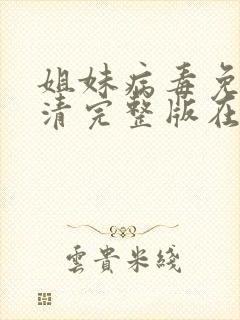 姐妹病毒免
清完整版在
雲貴米綫